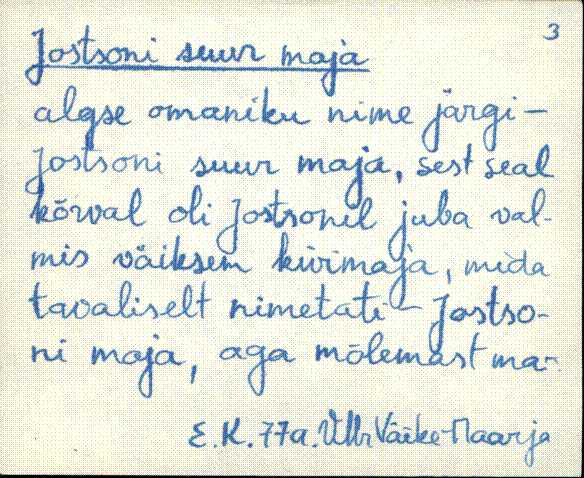 3
Jostsoni suur maja
algse omaniku nime järgi -
Jostsoni suur maja, sest seal
kõrval oli Jostsonil juba val-
mis väiksem kivimaja, mida
tavaliselt nimetati - Jostso-
ni maja, aga mõlemast ma-
E. K. 77a. VMr Väike-Maarja